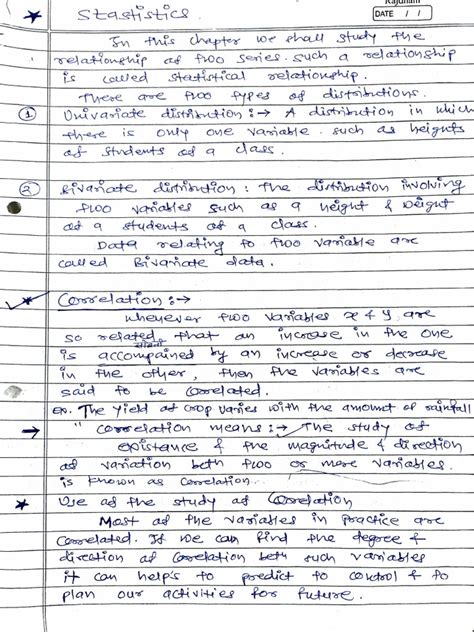 Rajdhani
DATE / /
★ Stastistics
In this chapter we shall study the
relationship of two series. such a relationship
is called statistical relationship.
There are two types of distributions.
① Univariate distribution :→ A distribution in which
there is only one variable such as heights
of students of a class.
② Bivariate distribution : The distribution involving
two variables such as a height & weight
of a students of a class.
Data relating to two variable are
called Bivariate data.
★ Correlation :→
Whenever two variables x & y are
so related that an increase in the one
is accompained by an increase or decrease
in the other, then the variables are
said to be correlated.
Ex. The yield of crop varies with the amount of rainfall
→ " correlation means :→ The study of
existance & the magnitude & direction
of variation betn two or more variables.
is known as correlation.
★ Use of the study of Correlation
Most of the variables in practice are
correlated. If we can find the degree &
direction of correlation betn such variables
it can help's to predict to control & to
plan our activities for future.